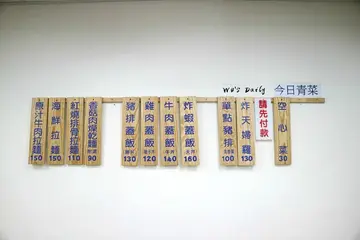 Wu's Daily 今日青菜
原汁牛肉拉麵 150
海鮮拉麵 150
紅燒排骨拉麵 110
香菇肉燥乾麵 90
豬排蓋飯 130
雞肉蓋飯 120
牛肉蓋飯 140
炸蝦蓋飯 160
單點豬排 100
炸天婦羅 130
請先付款
空心菜 30